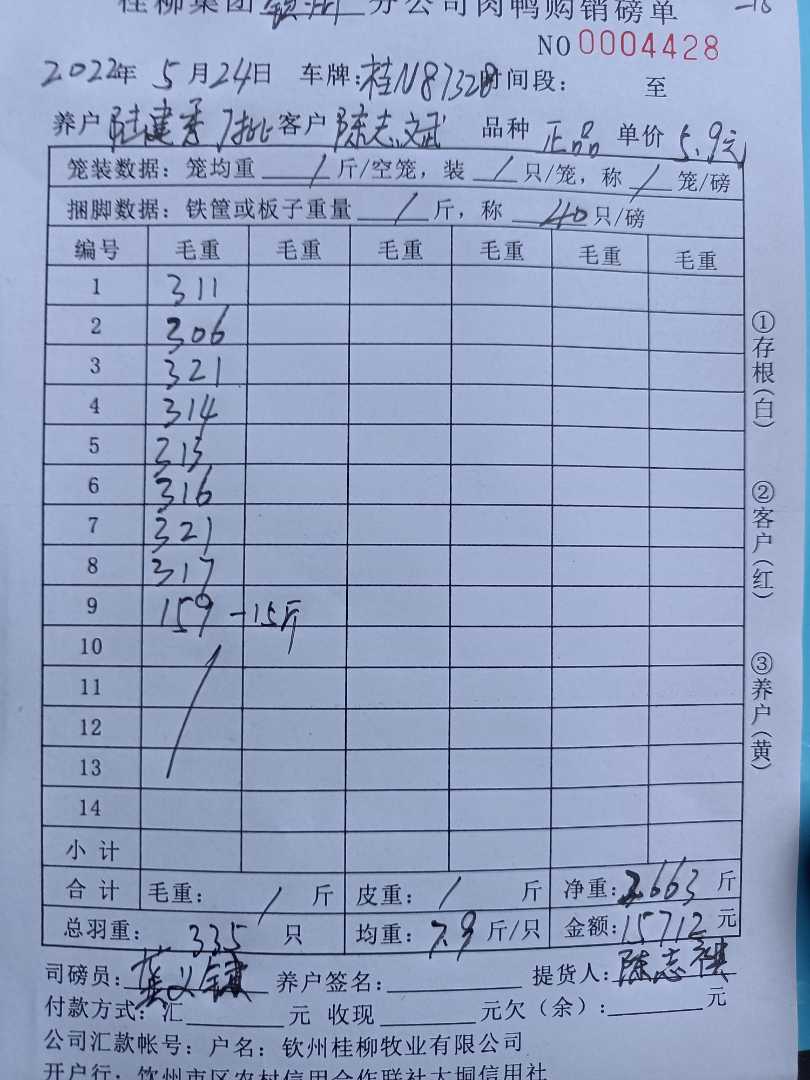 桂柳集团钦州分公司肉鸭购销磅单
-15
NO 0004428
2022年 5月24日 车牌:桂N87328时间段: 至
养户 陆建季 7批 客户 陈志斌 品种 正品 单价 5.9元
笼装数据: 笼均重 / 斤/空笼, 装 / 只/笼, 称 / 笼/磅
捆脚数据: 铁筐或板子重量 / 斤, 称 40只/磅
编号 毛重 毛重 毛重 毛重 毛重 毛重
1 311
2 306
3 321
4 314
5 313
6 316
7 321
8 317
9 159 -15斤
10
11
12
13
14
小 计
合 计 毛重: / 斤 皮重: / 斤 净重:2663 斤
总羽重: 335 只 均重: 7.9 斤/只 金额:15712 元
司磅员: 养户签名: 提货人:陈志
付款方式:汇 元 收现 元欠(余): 元
公司汇款帐号: 户名: 钦州桂柳牧业有限公司
开户行: 钦州市区农村信用合作联社大垌信用社
①存根(白)
②客户(红)
③养户(黄)